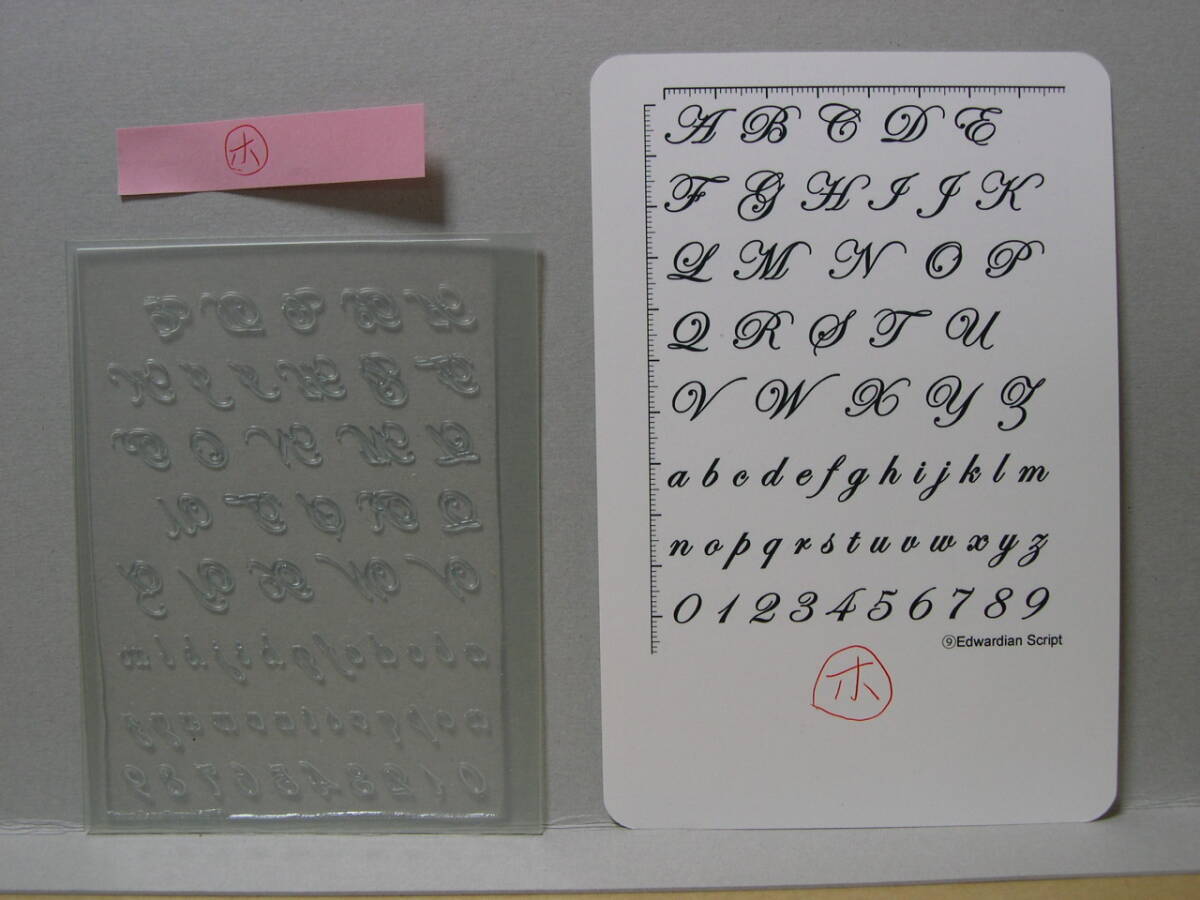 ホ
A B C D E
F G H I J K
L M N O P
Q R S T U
V W X Y Z
a b c d e f g h i j k l m
n o p q r s t u v w x y z
0 1 2 3 4 5 6 7 8 9
⑨Edwardian Script
ホ